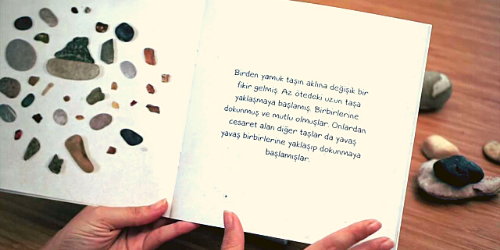 Birden yamuk taşın aklına değişik bir
fikir gelmiş. Az ötedeki uzun taşa
yaklaşmaya başlamış. Birbirlerine
dokunmuş ve mutlu olmuşlar. Onlardan
cesaret alan diğer taşlar da yavaş
yavaş birbirlerine yaklaşıp dokunmaya
başlamışlar.